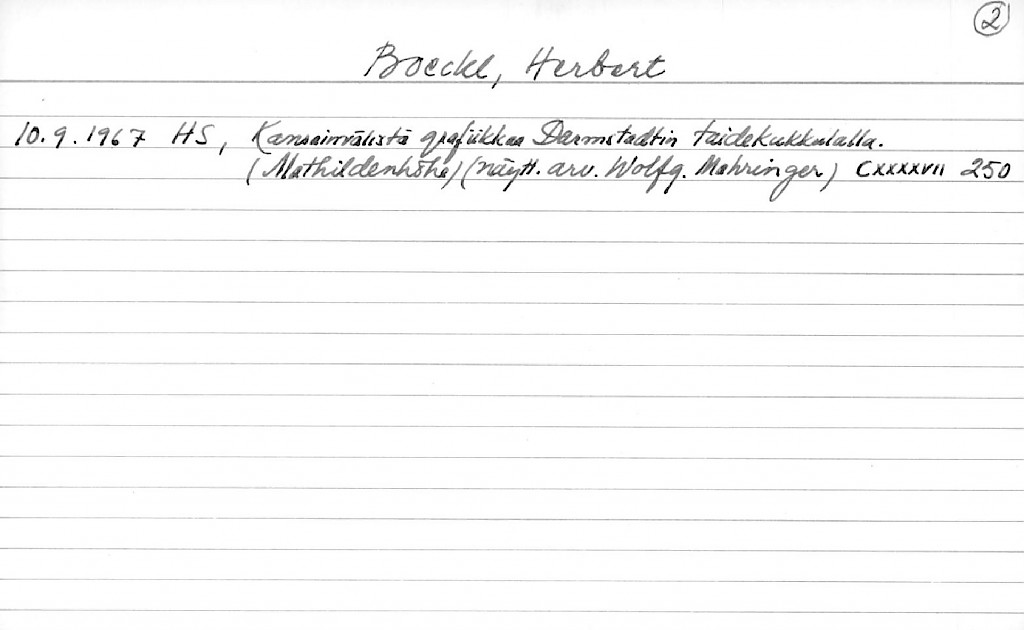 2
Boeckl, Herbert
10.9.1967 HS, Kansainvälistä grafiikkaa Darmstadtin taidekukkulalla.
(Mathildenhöhe) (näytt. arv. Wolfg. Mahringer) CXXXXVII 250